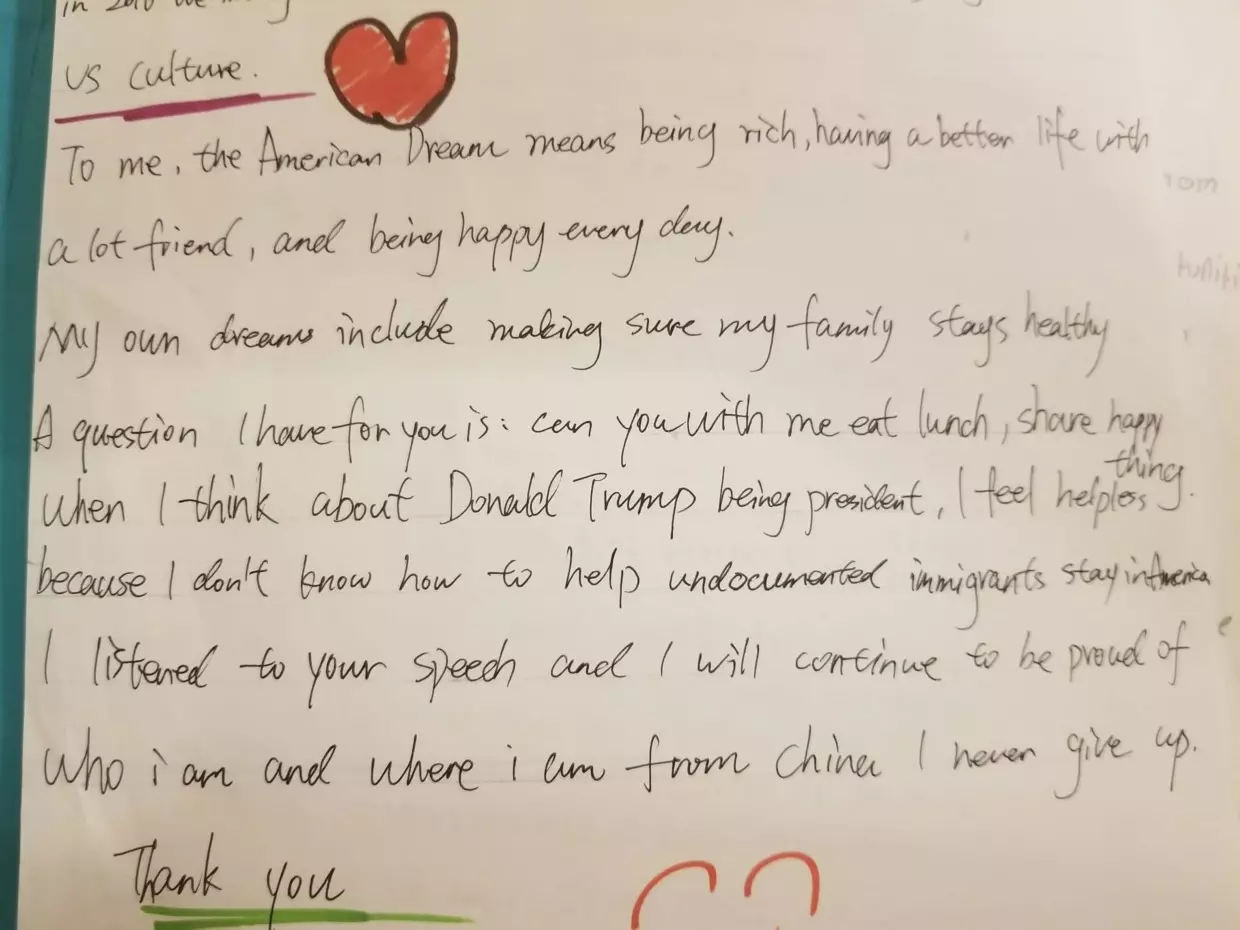 in 2016 we
US culture.
To me, the American Dream means being rich, having a better life with
a lot friend, and being happy every day.
My own dreams include making sure my family stays healthy
A question I have for you is: can you with me eat lunch, share happy
thing.
when I think about Donald Trump being president, I feel helpless
because I don't know how to help undocumented immigrants stay in America
I listened to your speech and I will continue to be proud of
who i am and where i am from China I never give up.
Thank you